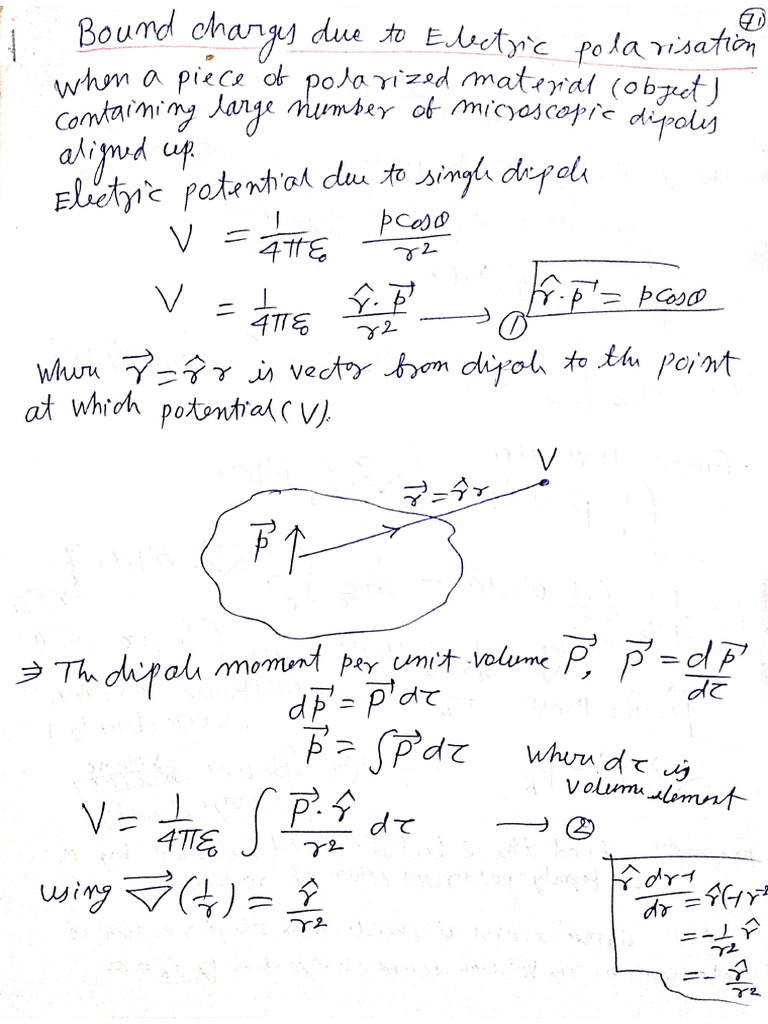 71
Bound charges due to Electric polarisation
When a piece of polarized material (object)
containing large number of microscopic dipoles
aligned up.
Electric potential due to single dipole
V = 1/4πε₀ pcosθ/r²
V = 1/4πε₀ r̂·p⃗/r² ⟶ ① r̂·p⃗ = pcosθ
Where r⃗ = r̂ r is vector from dipole to the point
at which potential (V).
V
r⃗ = r̂ r
p⃗
⇒ The dipole moment per unit volume P⃗, P⃗ = dp⃗/dτ
dp⃗ = P⃗ dτ
p⃗ = ∫P⃗ dτ where dτ is
volume element
V = 1/4πε₀ ∫ P⃗·r̂/r² dτ ⟶ ②
using ∇⃗(1/r) = r̂/r²
r̂ dr-1/dr = r̂(-1r-2
= -1/r² r̂
= - r̂/r²